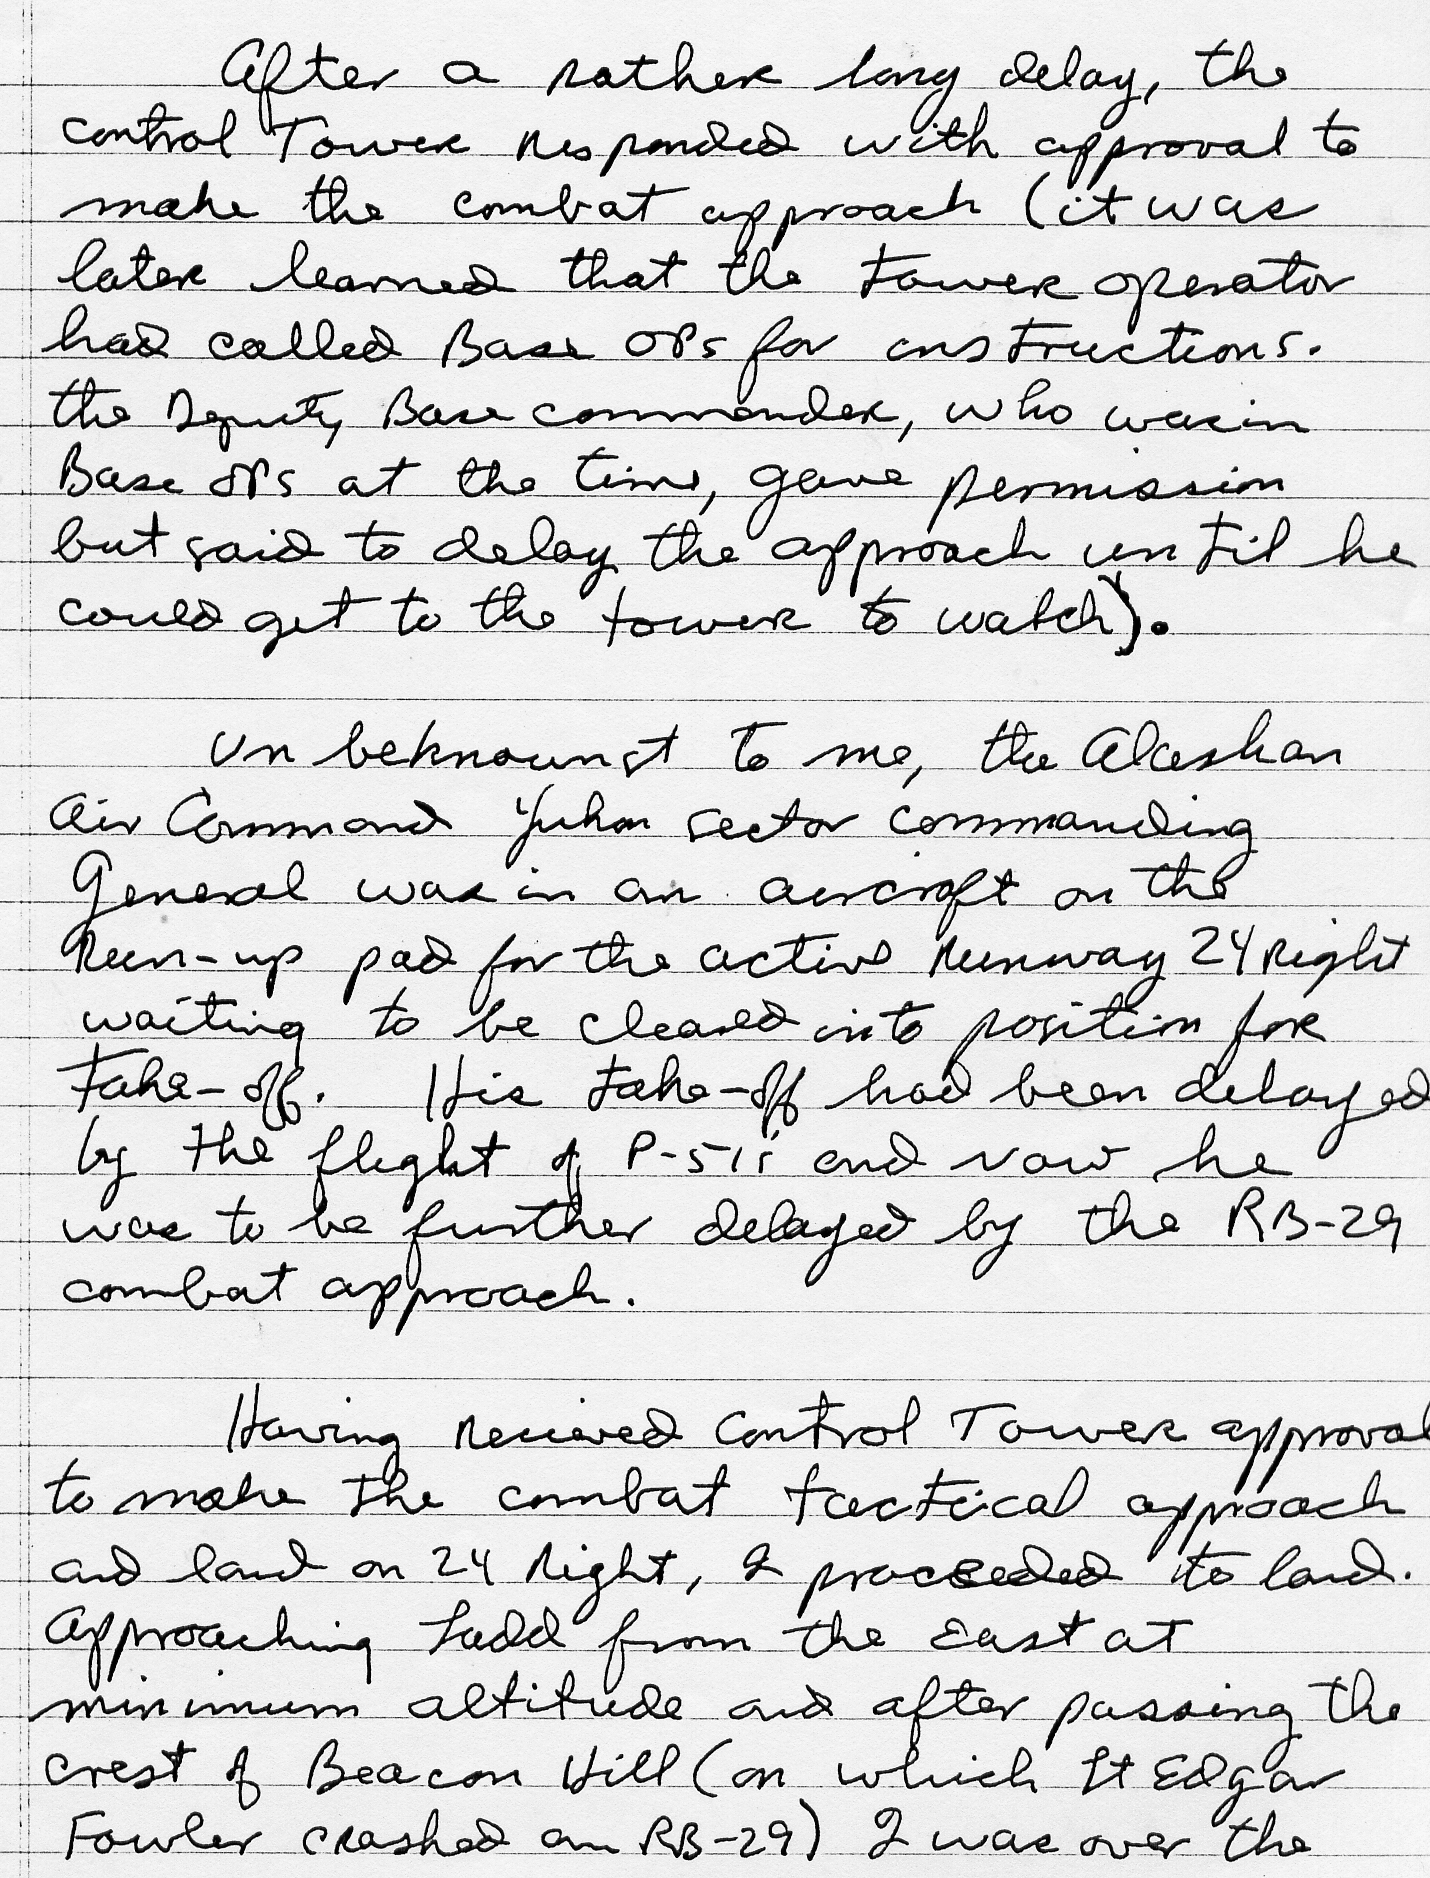 After a rather long delay, the
control Tower responded with approval to
make the combat approach (it was
later learned that the tower operator
had called Base OPS for instructions.
the Deputy Base commander, who was in
Base OPS at the time, gave permission
but said to delay the approach until he
could get to the tower to watch).
Unbeknownst to me, the Alaskan
Air Command Yukon sector commanding
General was in an aircraft on the
Run-up pad for the active runway 24 Right
waiting to be cleared into position for
take-off. His take-off had been delayed
by the flight of P-51s and now he
was to be further delayed by the RB-29
combat approach.
Having recieved Control Tower approval
to make the combat tactical approach
and land on 24 Right, I proceeded to land.
Approaching Ladd from the East at
minimum altitude and after passing the
crest of Beacon Hill (on which Lt Edgar
Fowler crashed an RB-29) I was over the